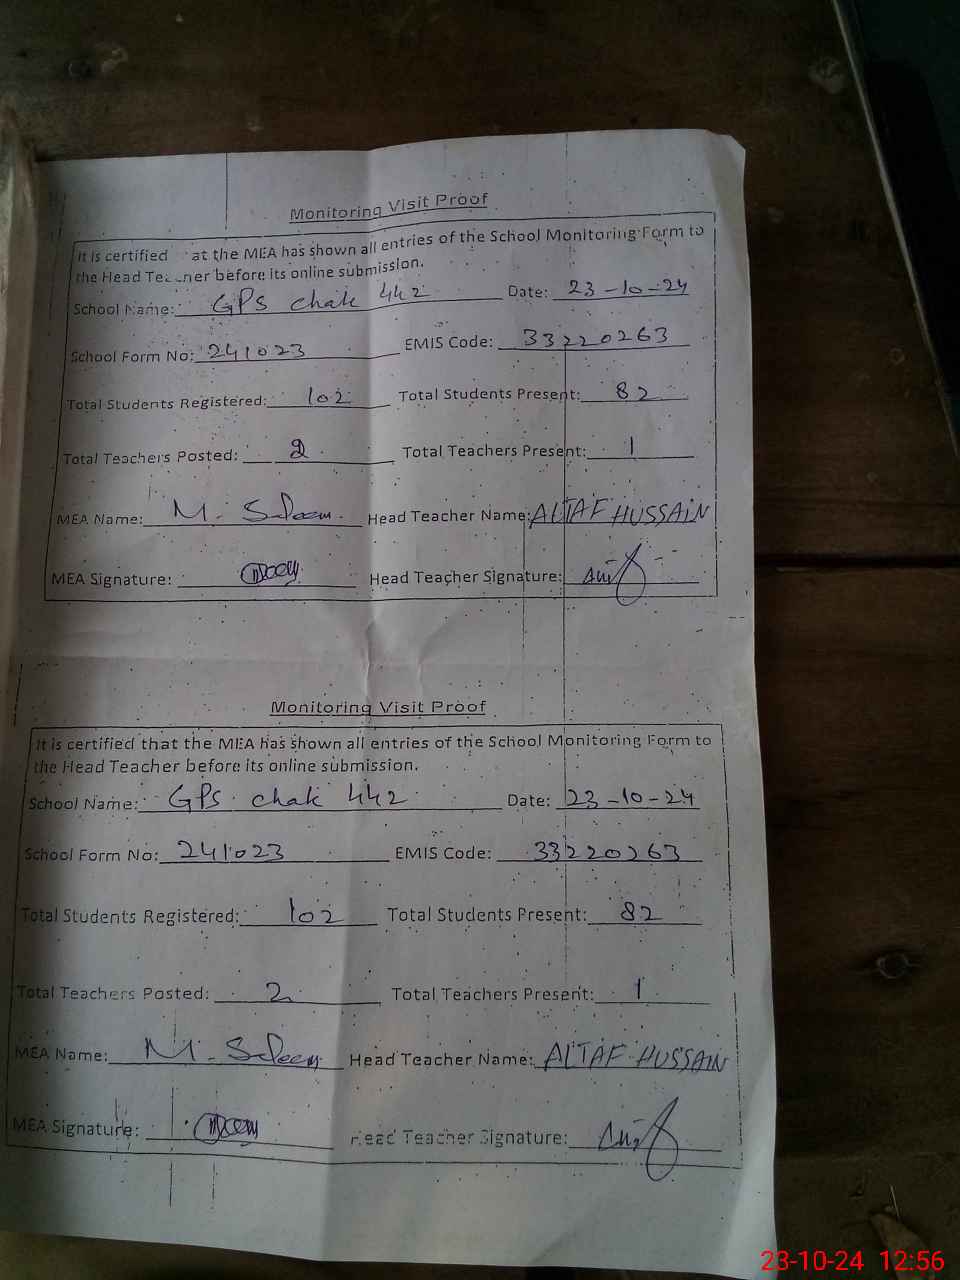 Monitoring Visit Proof
It is certified at the MEA has shown all entries of the School Monitoring Form to
the Head Teacher before its online submission.
School Name: GPS chak 442 Date: 23-10-24
School Form No: 241023 EMIS Code: 33220263
Total Students Registered: 102 Total Students Present: 82
Total Teachers Posted: 2 Total Teachers Present: 1
MEA Name: M. Saleem Head Teacher Name: ALTAF HUSSAIN
MEA Signature: Head Teacher Signature:
Monitoring Visit Proof
It is certified that the MEA has shown all entries of the School Monitoring Form to
the Head Teacher before its online submission.
School Name: GPS chak 442 Date: 23-10-24
School Form No: 241023 EMIS Code: 33220263
Total Students Registered: 102 Total Students Present: 82
Total Teachers Posted: 2 Total Teachers Present: 1
MEA Name: M. Saleem Head Teacher Name: ALTAF HUSSAIN
MEA Signature: Head Teacher Signature:
23-10-24 12:56